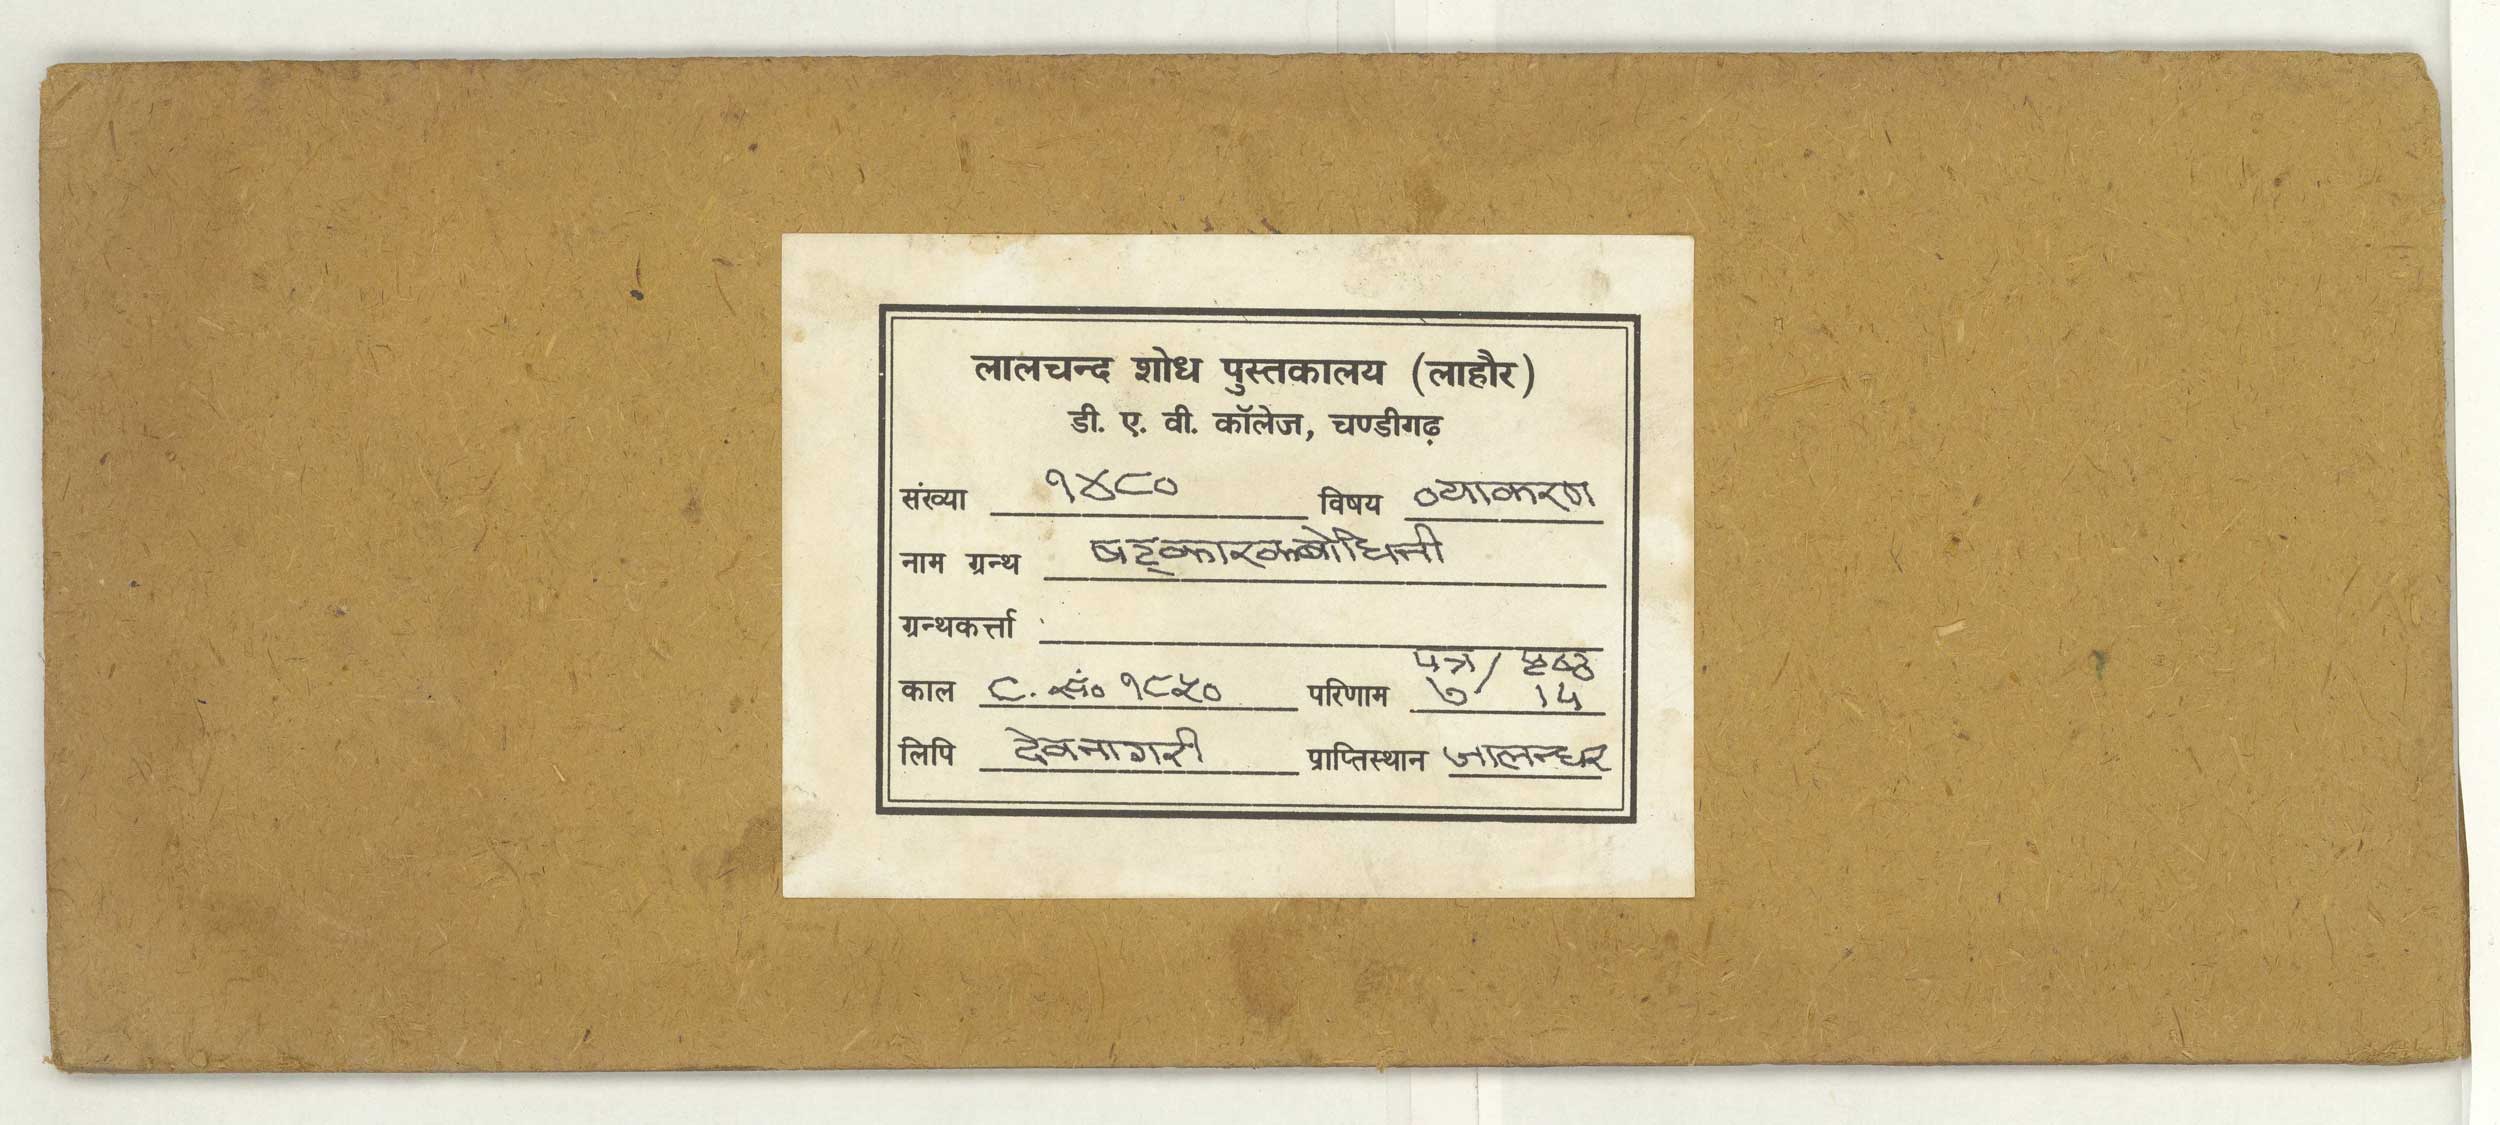 लालचन्द शोध पुस्तकालय (लाहौर)
डी. ए. वी. कॉलेज, चण्डीगढ़
संख्या १४८० विषय व्याकरण
नाम ग्रन्थ षट्कारकबोधिनी
ग्रन्थकर्त्ता
पत्र / पृष्ठ
काल ८. सं० १८५० परिणाम ७ 14
लिपि देवनागरी प्राप्तिस्थान जालन्धर